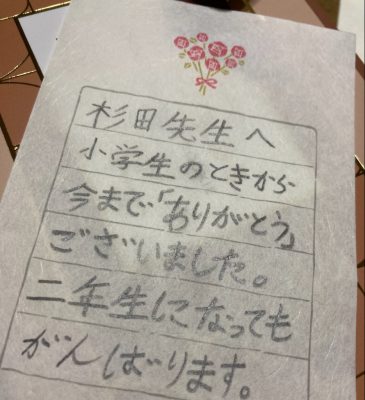 杉田先生へ
小学生のときから
今まで「ありがとう」
ございました。
二年生になっても
がんばります。